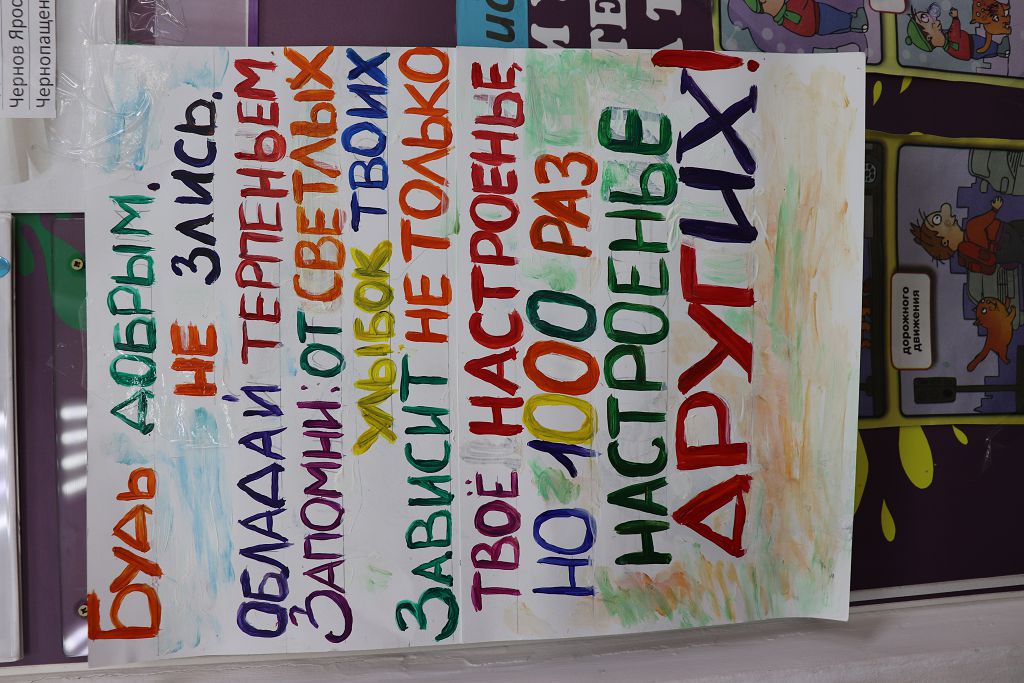 Чернов Ярос
Чернопащен
Будь добрым.
не злись.
Обладай терпеньем.
Запомни: от светлых
улыбок твоих
Зависит не только
твоё настроенье,
но 1000 раз
настроенье
других!
дорожного
движения